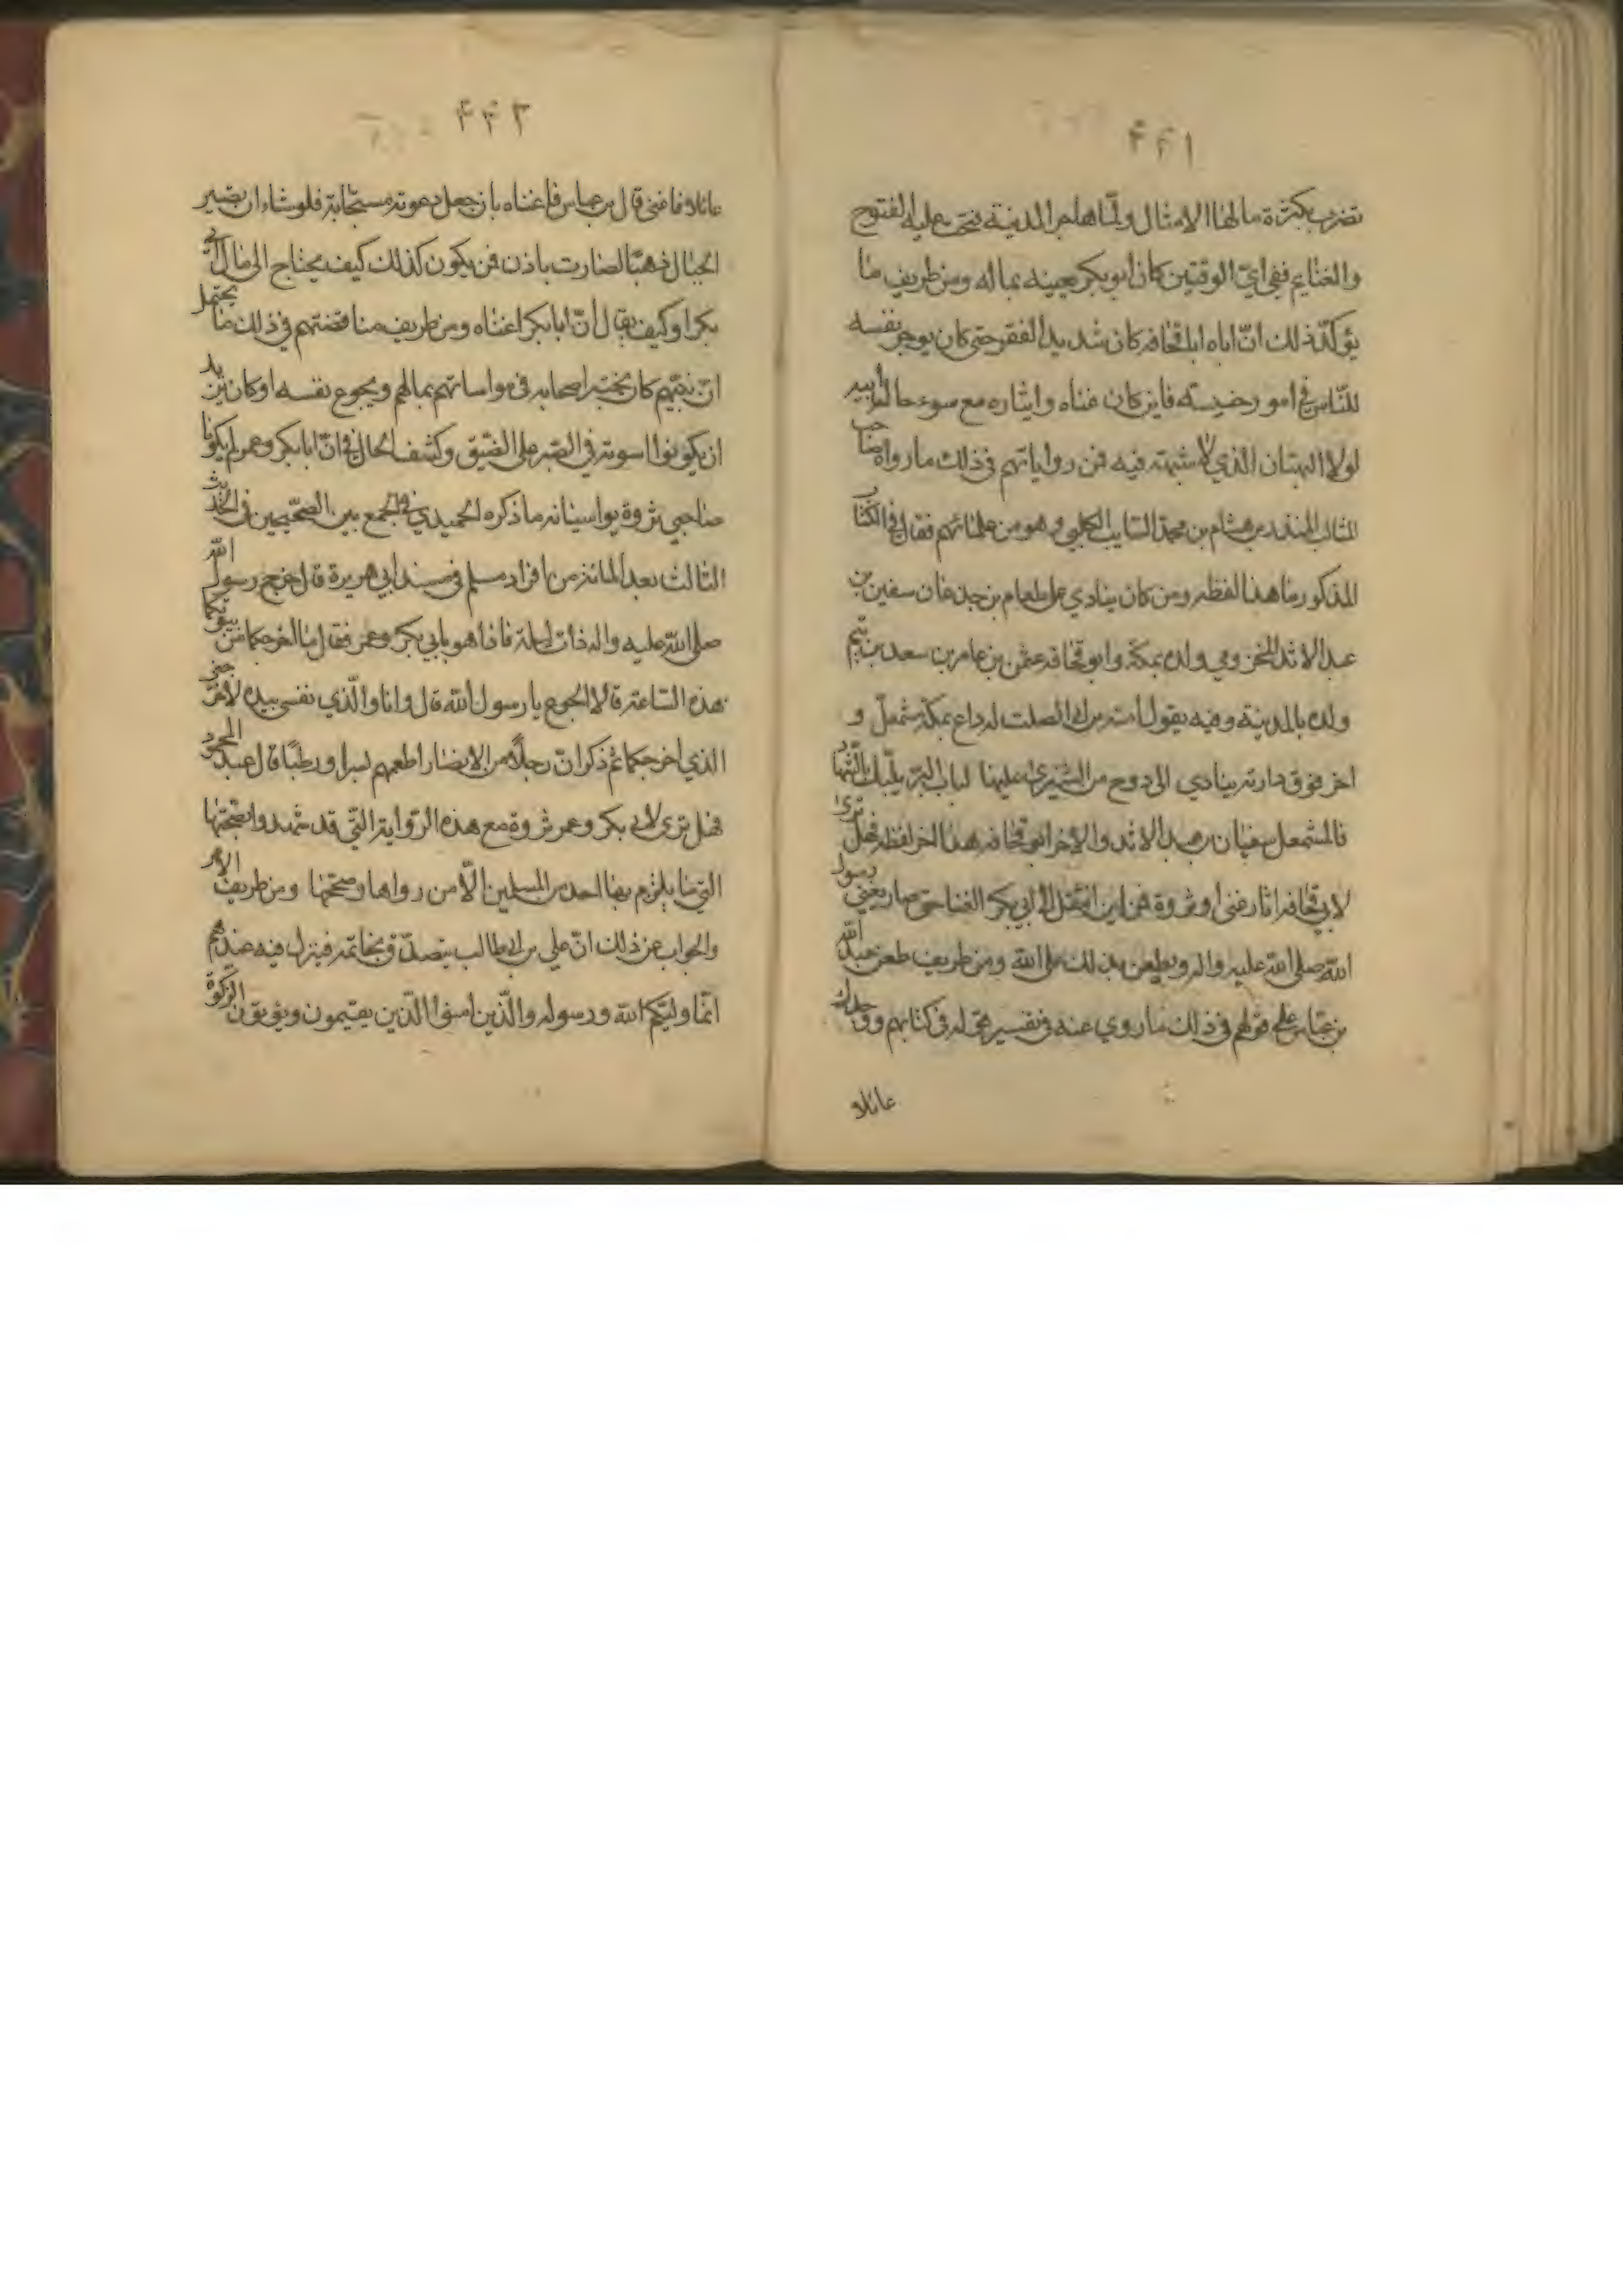 ۴۴۱
تضرب بكثرة مالها الامثال ولمّا هاجر المدينة فتحت عليه الفتوح
والغنايم ففي ايّ الوقتين كان ابو بكر يعينه بماله ومن طريف ما
يؤكّد ذلك انّ اباه ابا قحافه كان شديد الفقر حتى كان يوجر نفسه
للنّاس في امور خسيسه فاين كان غناه وايثاره مع سوء حال ابيه
لولا البهتان الذي لا شبهته فيه فمن رواياتهم في ذلك ما رواه صاحب
المثالب المنذر بن هشام بن محمد السّايب الكلبي وهو من علمائهم فقال في الكتاب
المذكور ما هذا لفظه ومن كان ينادي على طعام بن جدعان سفين بن
عبد الاثد المخزومي ولده بمكة وابو قحافه عثمن بن عامر بن سعد بن تيم
ولده بالمدينة وفيه يقول امية بن ابي الصلت له داع بمكة مشمعلّ و
اخر فوق دارته ينادي الى دوح من الشيزى عليها لباب البرّ يلبّك بالشّهاد
فالمشمعل سفيان بن عبد الاثد والاخر ابو قحافه هذا اخر لفظه فهل ترى
لابي قحافه اثار غنى او ثروة فمن اين انتقل الى ابي بكر الغنا حتى صار يغني رسول
الله صلى الله عليه واله ويطعن بذلك على الله ومن طريف طعن عبد الله
بن عبّاس على قولهم في ذلك ما روي عنه في تفسير قوله في كتابهم ووجدك
عائلا
۴۴۲
عائلا فاغنى قال بن عباس فاغناه بان جعل دعوته مستجابة فلو شاء ان يصير
الجبال ذهبّا لصارت باذن فمن يكون كذلك كيف يحتاج الى مال ابي
بكر او كيف يقال انّ ابا بكر اغناه ومن طريف مناقضتهم في ذلك ما يحتمل
انّ نبيّهم كان يختبر اصحابه في مواساتهم بمالهم ويجوع نفسه او كان يريد
ان يكونوا اسوته في الصّبر على الضّيق وكشف الحال في انّ ابا بكر وعمر لم يكونا
صاحبي ثروة يواسيانه ما ذكره الحميدي في الجمع بين الصّحيحين في الحديث
الثالث بعد المائة من افراد مسلم في مسند ابي هريرة قال خرج رسول الله
صلى الله عليه واله ذات ليلة فاذا هو بابي بكر وعمر فقال ما اخرجكما من بيوتكما
هذه السّاعة قالا الجوع يا رسول الله قال وانا والّذي نفسي بيده لاخرجني
الذي اخرجكما ثم ذكر انّ رجلاً من الانصار اطعمهم بسرا ورطبًا قال عبد المحمود
فهل ترى لابي بكر وعمر ثروة مع هذه الرّواية التّي قد شهدوا بصحّتها
التي ما يلزم بها احد من المسلمين الّا من رواها وصحّحها ومن طريف الامر
والجواب عن ذلك انّ علي بن ابي طالب يتصدّق بخاتمه فينزل فيه عندهم
انّما وليّكم الله ورسوله والّذين امنوا الّذين يقيمون ويؤتون الزكوة